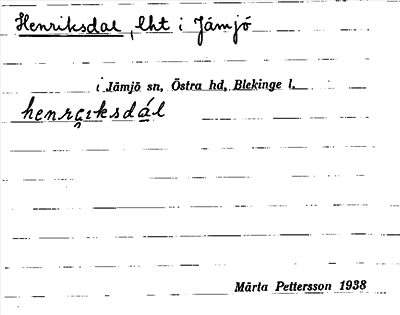 Henriksdal, lht i Jämjö
i Jämjö sn, Östra hd, Blekinge l.
henrıksdál
Märta Pettersson 1938